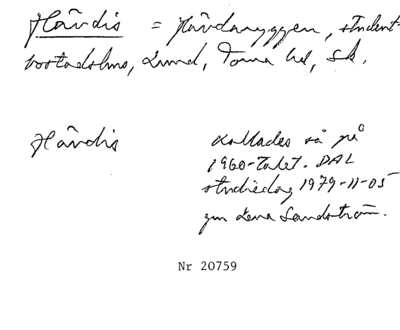 Härdis = Härdaryggen, student
bostadshus, Lund, Torna hd, Sk.
Härdis
kallades så på
1960-talet. DAL
studiedag 1979-11-05
gm Lena Sandström.
Nr 20759